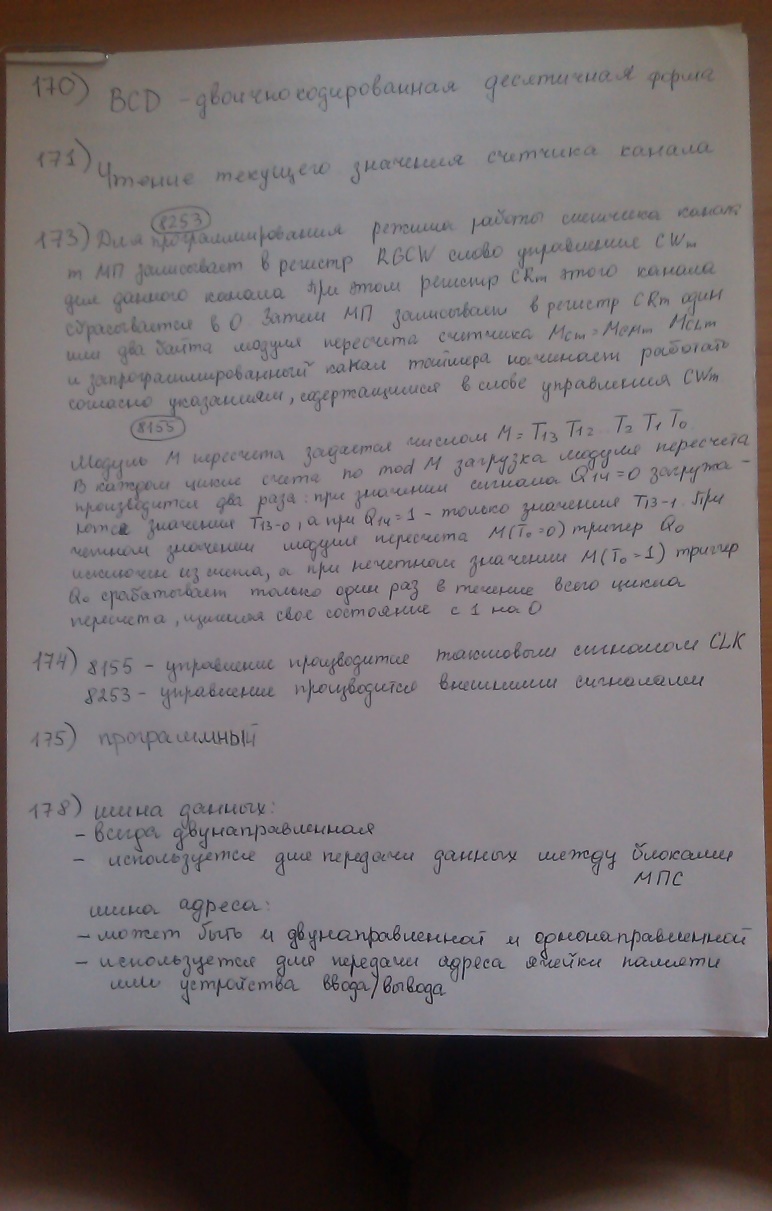 170) BCD - двоичнокодированная десятичная форма
171) Чтение текущего значения счетчика канала
8253
173) Для программирования режима работы счетчика канала
m МП записывает в регистр RGCW слово управления CWm
для данного канала При этом регистр CRm этого канала
сбрасывается в 0. Затем МП записывает в регистр CRm один
или два байта модуля пересчета счетчика Mcm = Mcmm McLm
и запрограммированный канал таймера начинает работать
согласно указаниям, содержащимся в слове управления CWm
8155
Модуль M пересчета задается числом M = T13 T12 T2 T1 T0
В каждом цикле счета по mod M загрузка модуля пересчета
производится два раза: при значении сигнала Q14=0 загружа-
ются значения T13-0, а при Q14=1 - только значения T13-1. При
четном значении модуля пересчета M(T0=0) тригер Q0
исключен из счета, а при нечетном значении M(T0=1) тригер
Q0 срабатывает только один раз в течение всего цикла
пересчета, изменяя свое состояние с 1 на 0
174) 8155 - управление производится тактовым сигналом CLK
8253 - управление производится внешними сигналами
175) программный
178) шина данных:
- всегда двунаправленная
- используется для передачи данных между блоками
МПС
шина адреса:
- может быть и двунаправленной и однонаправленной
- используется для передачи адреса ячейки памяти
или устройства ввода/вывода